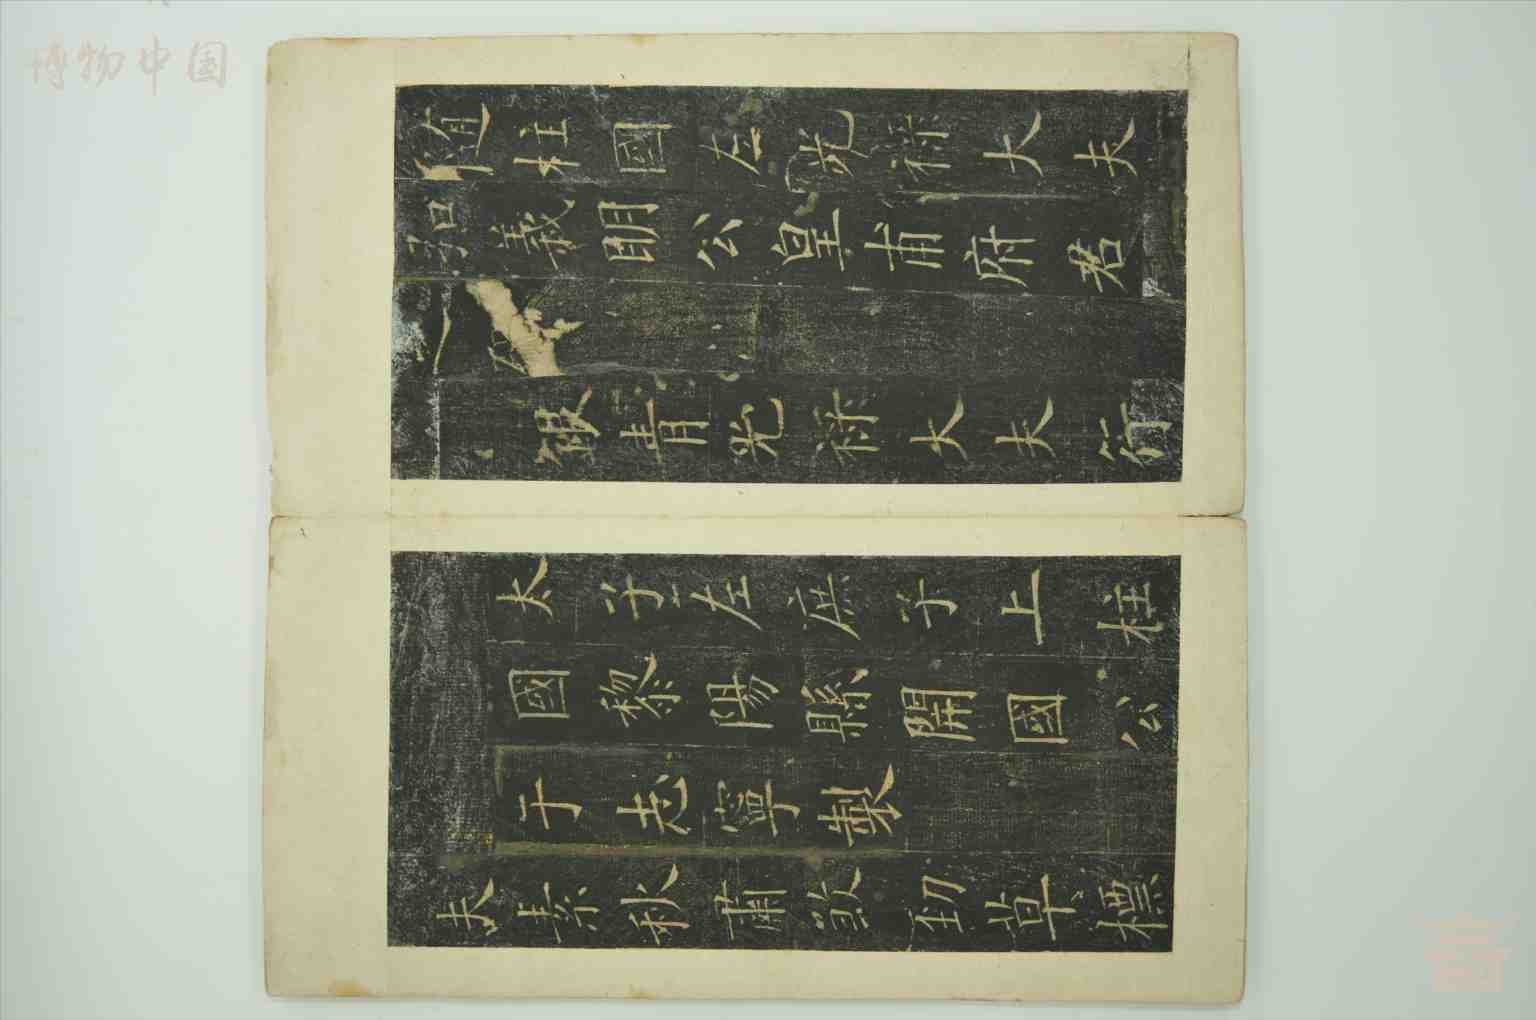 隨柱國左光祿大夫
弘義明公皇甫府君
銀青光祿大夫行
太子左庶子上柱
國黎陽縣開國公
于志寧製
夫素秋肅煞勁草標
博物中国